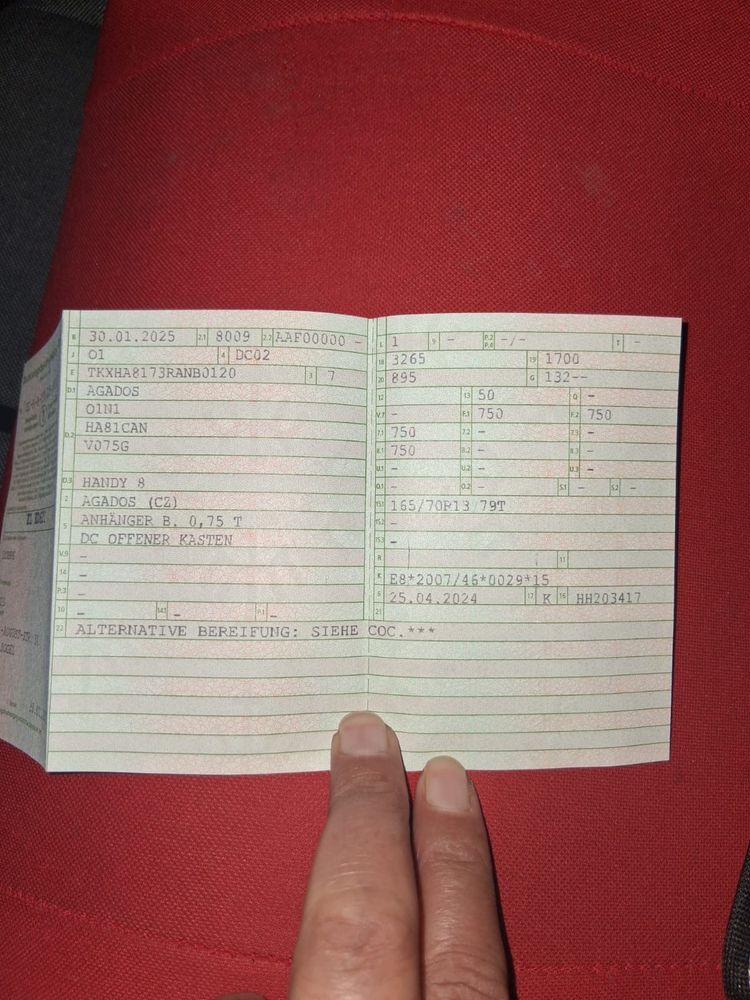 B 30.01.2025 2.1 8009 2.2 AAF00000 -
J 01 4 DC02
E TKXHA8173RANB0120 3 7
D.1 AGADOS
01N1
D.2 HA81CAN
V075G
D.3 HANDY 8
2 AGADOS (CZ)
5 ANHÄNGER B. 0,75 T
DC OFFENER KASTEN
V.9 -
14 -
P.3 -
10 - 14.1 - P.1 -
22 ALTERNATIVE BEREIFUNG: SIEHE COC.***
L 1 9 - P.2 P.4 -/- T -
18 3265 19 1700
20 895 G 132--
12 - 13 50 Q -
V.7 - F.1 750 F.2 750
7.1 750 7.2 - 7.3 -
8.1 750 8.2 - 8.3 -
U.1 - U.2 - U.3 -
O.1 - O.2 - S.1 - S.2 -
15.1 165/70R13 79T
15.2 -
15.3 -
R 11
K E8*2007/46*0029*15
6 25.04.2024 17 K 16 HH203417
21